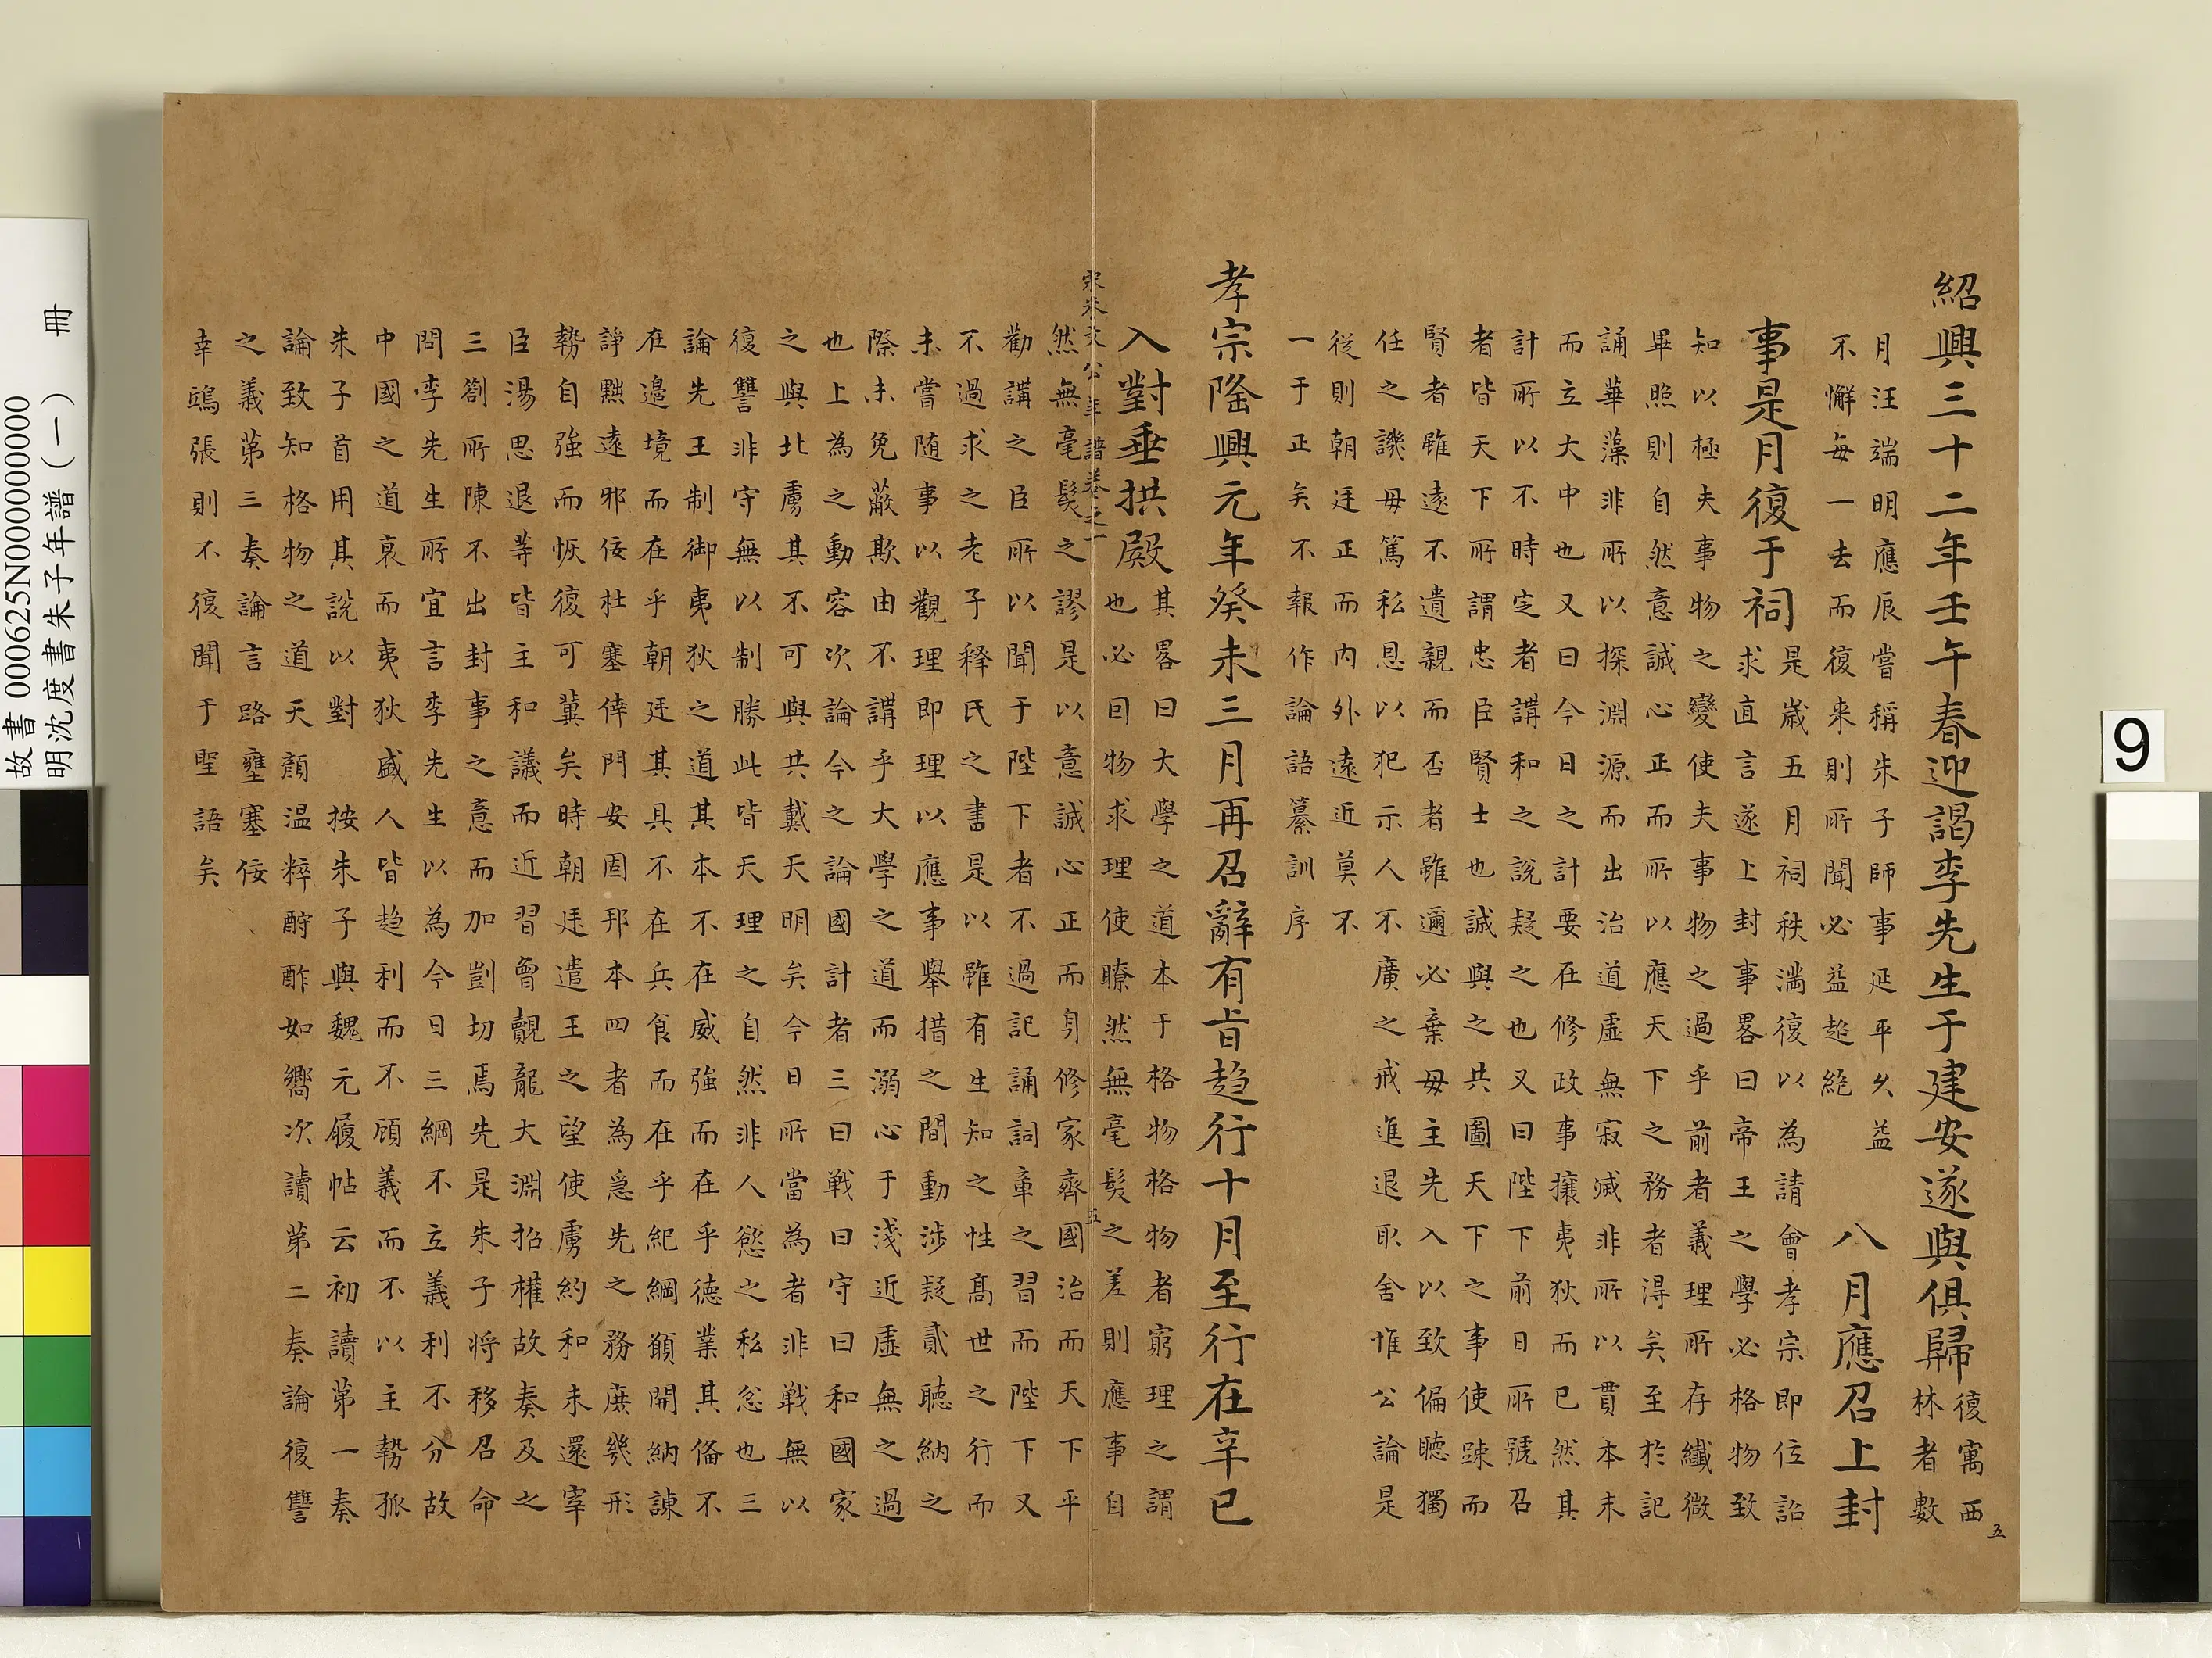 紹興三十二年壬午春迎謁李先生于建安遂與俱歸
復寓西
林者數
月汪端明應辰嘗稱朱子師事延平久益
不懈每一去而復来則所聞必益超絶
八月應召上封
事是月復于祠
是歳五月祠秩滿復以為請會孝宗即位詔
求直言遂上封事畧曰帝王之學必格物致
知以極夫事物之變使夫事物之過乎前者義理所存纎微
畢照則自然意誠心正而所以應天下之務者得矣至於記
誦華藻非所以探淵源而出治道虛無寂滅非所以貫本末
而立大中也又曰今日之計要在修政事攘夷狄而已然其
計所以不時定者講和之說疑之也又曰陛下前日所號召
者皆天下所謂忠臣賢士也誠與之共圖天下之事使踈而
賢者雖遠不遺親而否者雖邇必棄毋主先入以致偏聽獨
任之譏毋篤私恩以犯示人不廣之戒進退取舍惟公論是
従則朝廷正而内外遠近莫不
一于正矣不報作論語纂訓序
孝宗隆興元年癸未三月再召辭有旨趋行十月至行在辛巳
入對垂拱殿
其畧曰大學之道本于格物格物者窮理之謂
也必曰物求理使瞭然無毫髮之差則應事自
宋朱文公年譜卷之一
五
然無毫髮之謬是以意誠心正而身修家齊國治而天下平
勸講之臣所以聞于陛下者不過記誦詞章之習而陛下又
不過求之老子釋氏之書是以雖有生知之性髙世之行而
未嘗随事以觀理即理以應事舉措之間動涉疑貳聽納之
際未免蔽欺由不講乎大學之道而溺心于淺近虛無之過
也上為之動容次論今之論國計者三曰戦曰守曰和國家
之與北虜其不可與共戴天明矣今日所當為者非戰無以
復讐非守無以制勝此皆天理之自然非人慾之私忿也三
論先王制御夷狄之道其本不在威強而在乎德業其備不
在邉境而在乎朝廷其具不在兵食而在乎紀綱願開納諫
諍黜遠邪佞杜塞倖門安固邦本四者為急先之務庶幾形
勢自強而恢復可冀矣時朝廷遣王之望使虜約和未還宰
臣湯思退等皆主和議而近習曾覿龍大淵招權故奏及之
三劄所陳不出封事之意而加剴切焉先是朱子将移召命
問李先生所宜言李先生以為今日三綱不立義利不分故
中國之道衰而夷狄盛人皆趋利而不顧義而不以主勢孤
朱子首用其說以對　按朱子與魏元履帖云初讀第一奏
論致知格物之道天顔温粹酧酢如嚮次讀第二奏論復讐
之義第三奏論言路壅塞佞
幸鴟張則不復聞于聖語矣
五
故書 000625N000000000
明沈度書朱子年譜(一)　冊
9